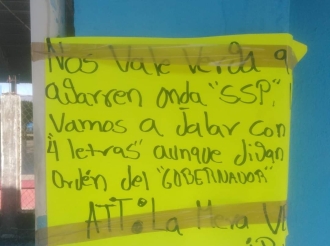 Nos Vale Verda q
agarren onda "SSP",!
Vamos a Jalar con
"4 letras" aunque digan
Ordén del "GOBETINADOR"
ATT: La Mera V